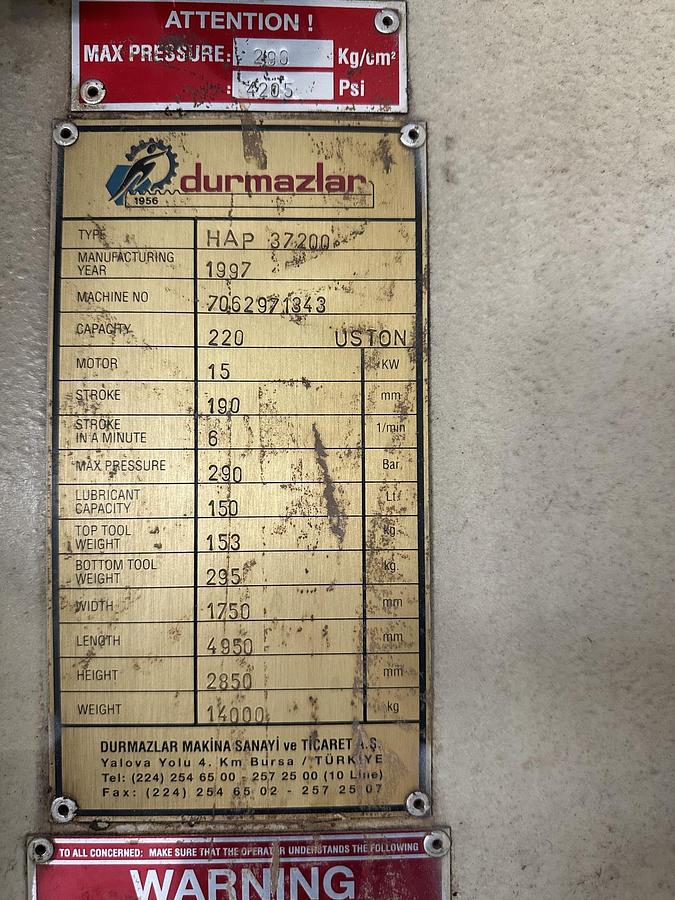 ATTENTION !
MAX PRESSURE: 290 Kg/cm²
: 4205 Psi
durmazlar
1956
TYPE HAP 37200
MANUFACTURING YEAR 1997
MACHINE NO 7062971343
CAPACITY 220 USTON
MOTOR 15 KW
STROKE 190 mm
STROKE IN A MINUTE 6 1/min
MAX PRESSURE 290 Bar
LUBRICANT CAPACITY 150 Lt
TOP TOOL WEIGHT 153 kg
BOTTOM TOOL WEIGHT 295 kg
WIDTH 1750 mm
LENGTH 4950 mm
HEIGHT 2850 mm
WEIGHT 14000 kg
DURMAZLAR MAKİNA SANAYİ ve TİCARET A.Ş.
Yalova Yolu 4. Km Bursa / TÜRKİYE
Tel: (224) 254 65 00 - 257 25 00 (10 Line)
Fax: (224) 254 65 02 - 257 25 07
TO ALL CONCERNED: MAKE SURE THAT THE OPERATOR UNDERSTANDS THE FOLLOWING
WARNING